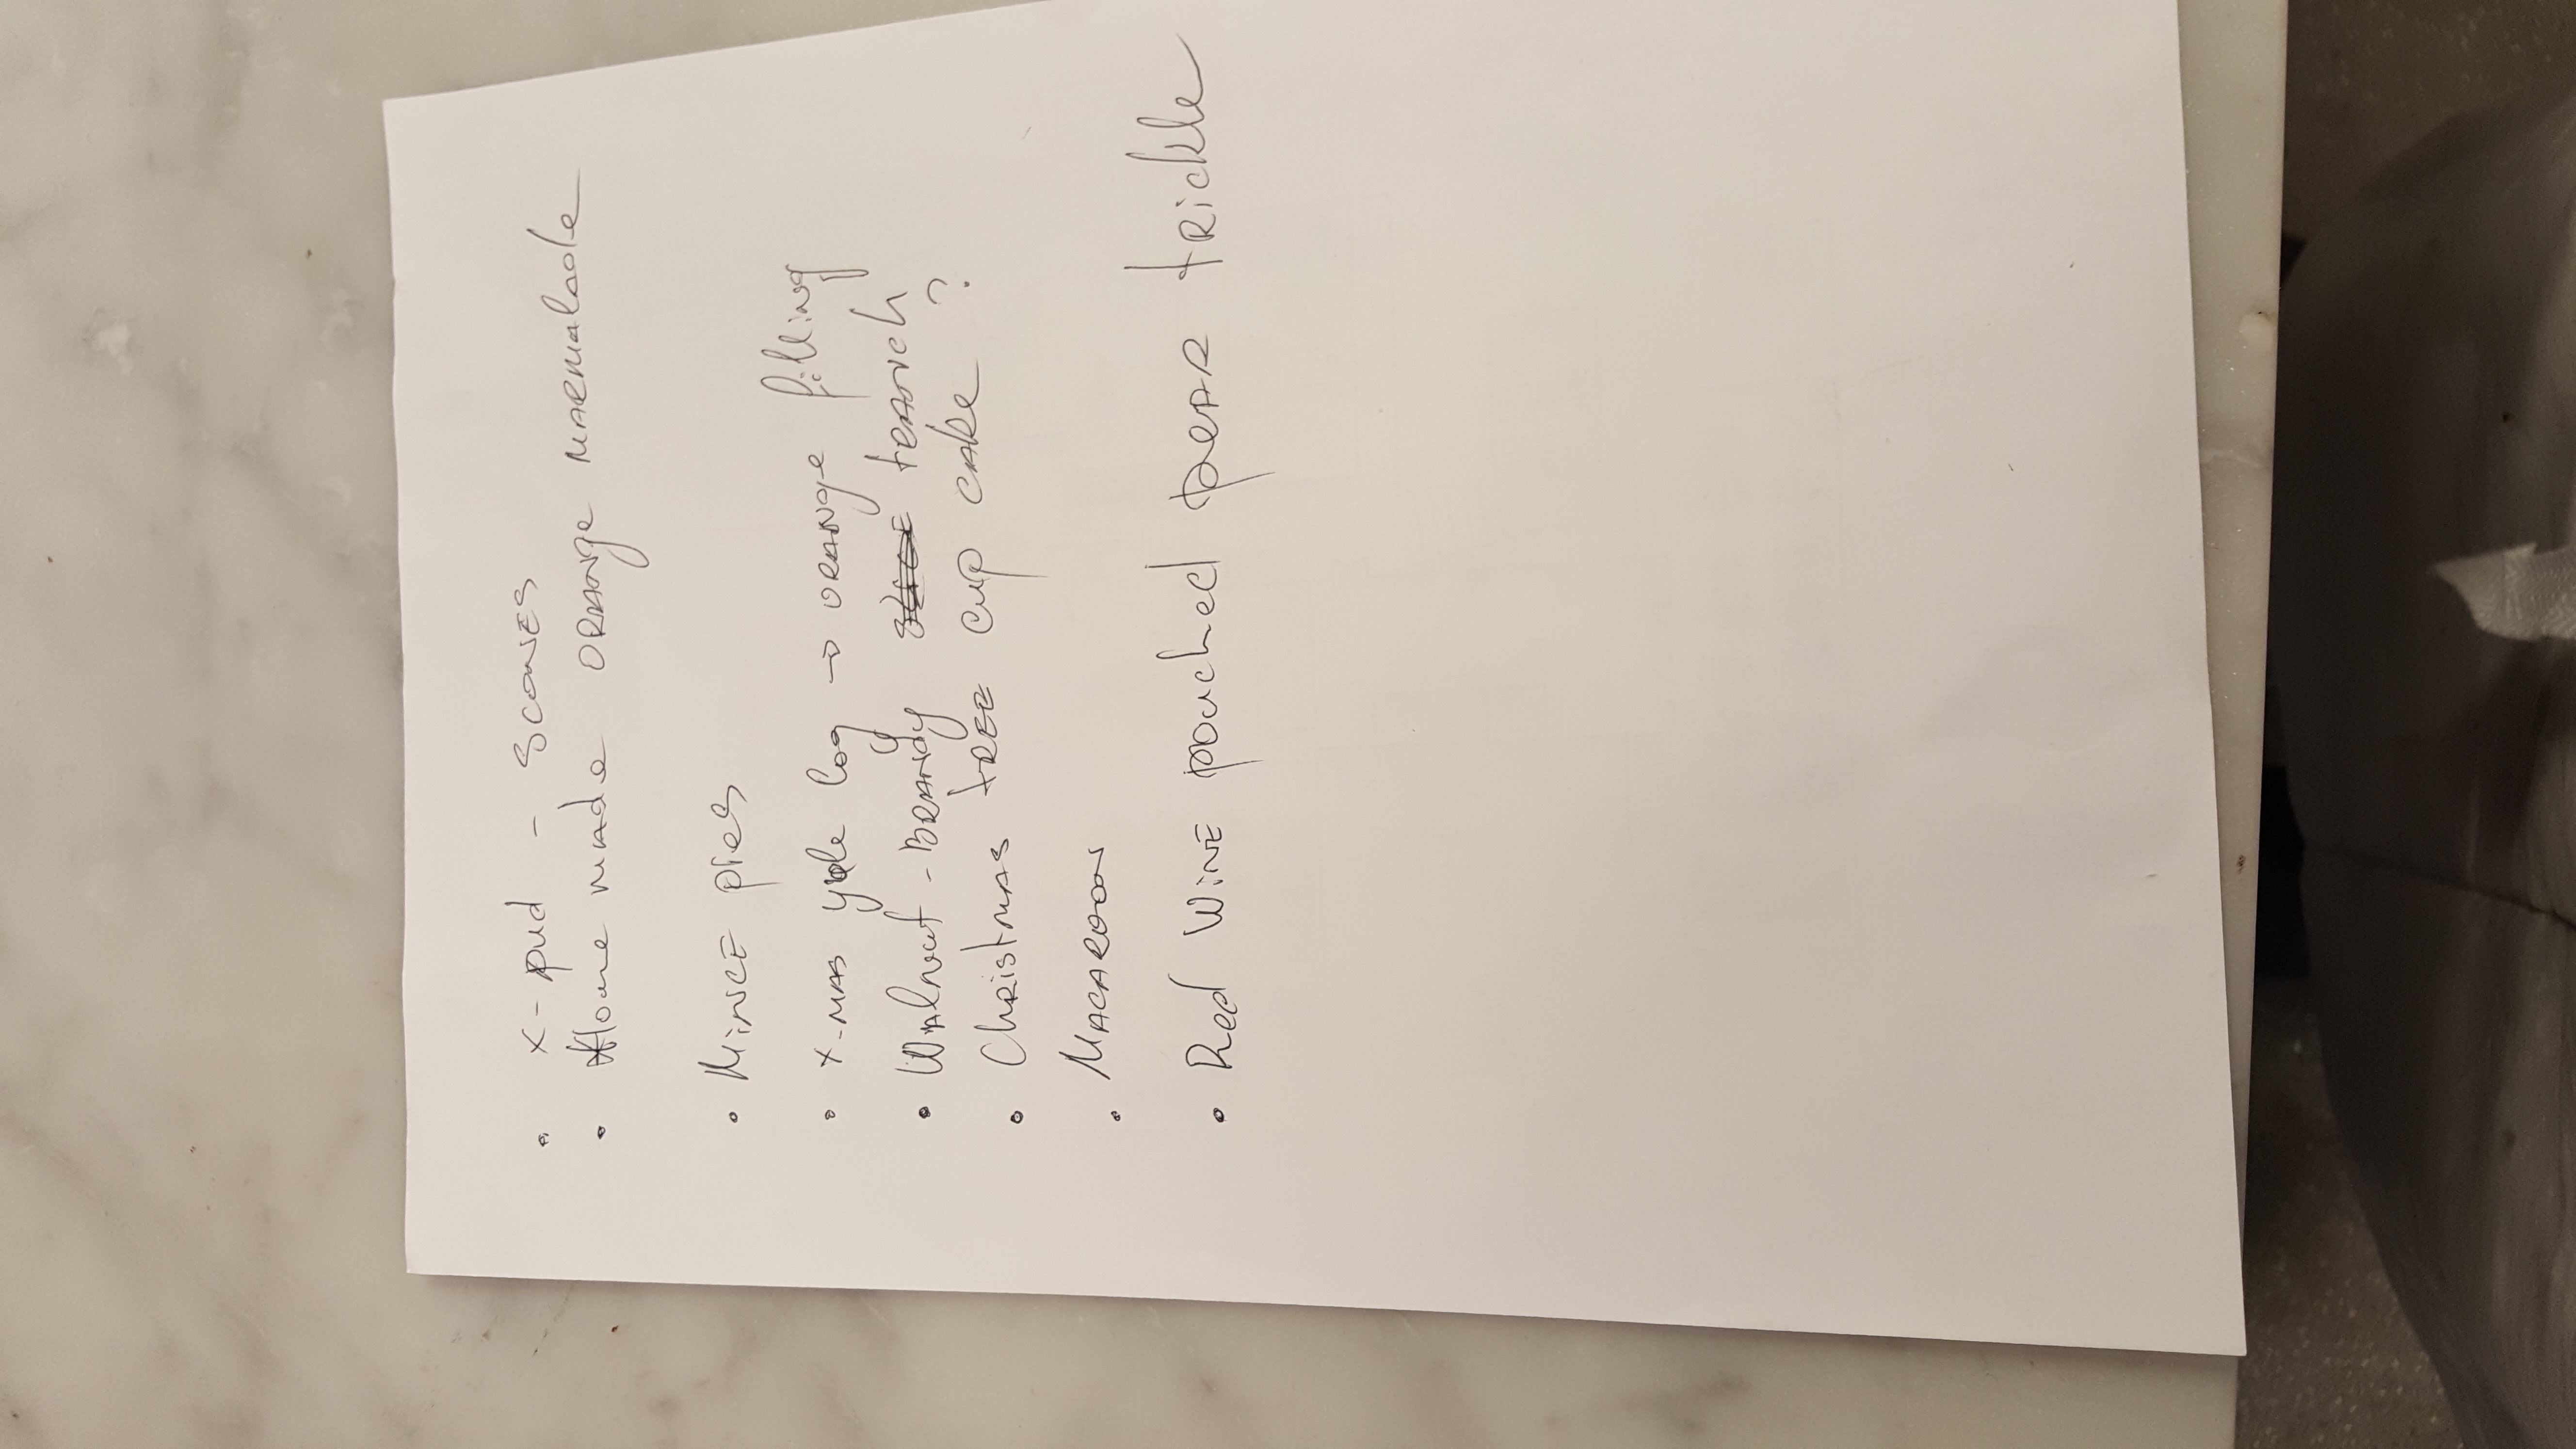 • X-pud - SCONES
• Home made ORANGE MARMALADE
• MINCE pies
• X-MAS yule log → ORANGE filling
• Walnut - BRANDY tranch
• Christmas TREE cup cake ?
• MACAROON
• Red WINE pouched pear trickle